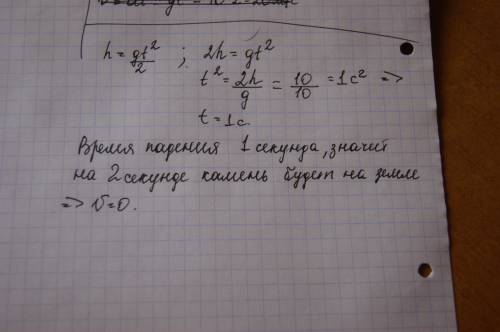 h = gt²/2 ; 2h = gt²
t² = 2h/g = 10/10 = 1c² =>
t = 1c.
Время падения 1 секунда, значит
на 2 секунде камень будет на земле
=> v=0.